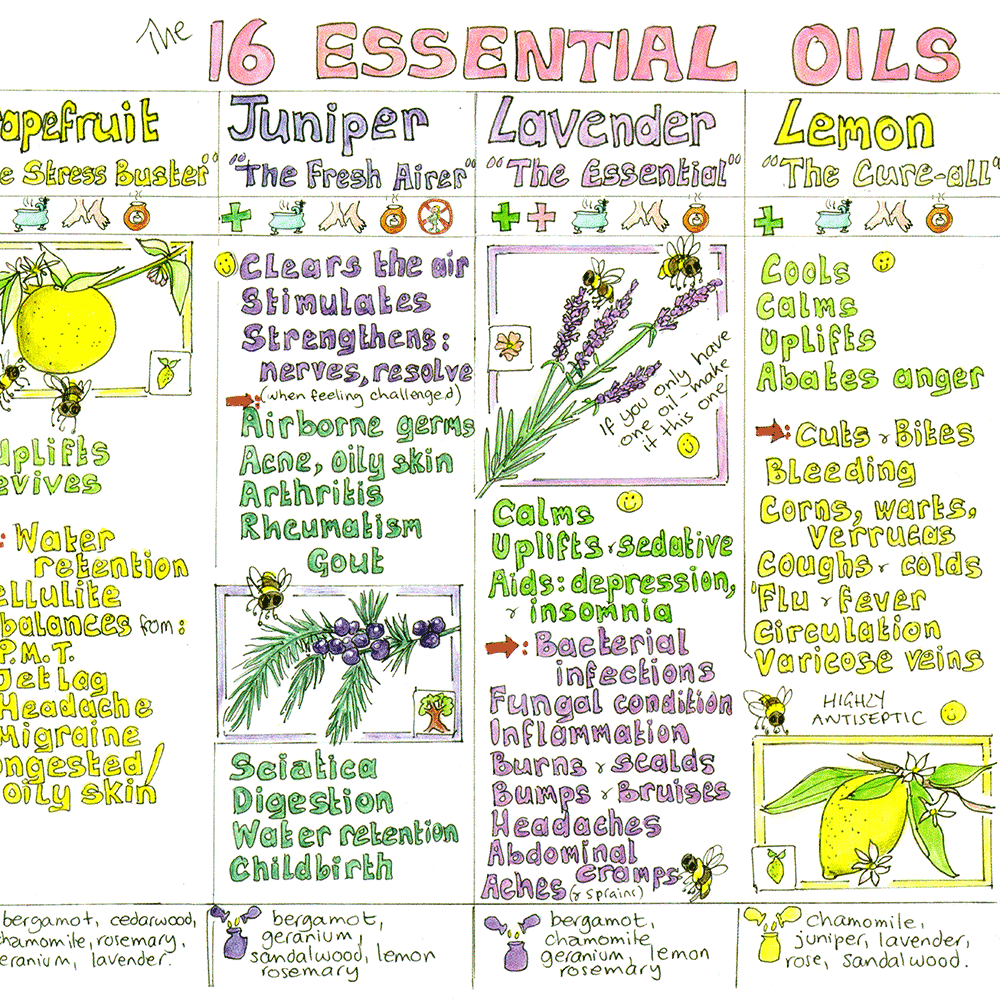 The 16 ESSENTIAL OILS
apefruit
e Stress Buster"
Uplifts
evives
: Water
retention
ellulite
balances from:
P.M.T.
Jetlag
Headache
Migraine
ongested/
oily skin
bergamot, cedarwood,
chamomile, rosemary,
eranium, lavender.
Juniper
"The Fresh Airer"
Clears the air
Stimulates
Strengthens:
nerves, resolve
(when feeling challenged)
Airborne germs
Acne, oily skin
Arthritis
Rheumatism
Gout
Sciatica
Digestion
Water retention
Childbirth
bergamot,
geranium,
sandalwood, lemon
rosemary
Lavender
"The Essential"
If you only have
one oil - make
it this one!
Calms
Uplifts & sedative
Aids: depression,
& insomnia
: Bacterial
infections
Fungal condition
Inflammation
Burns & scalds
Bumps & Bruises
Headaches
Abdominal
cramps
Aches (& sprains)
bergamot,
chamomile
geranium, lemon
rosemary
Lemon
"The Cure-all"
Cools
Calms
Uplifts
Abates anger
: Cuts & Bites
Bleeding
Corns, warts,
verrucas
Coughs & colds
'Flu & fever
Circulation
Varicose veins
HIGHLY
ANTISEPTIC
chamomile,
juniper, lavender,
rose, sandalwood.